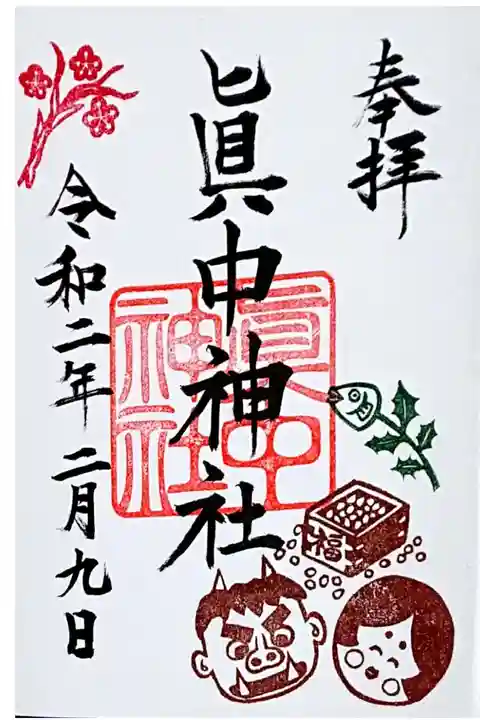 奉拝
眞中神社
眞中
神社
令和二年 二月九日
福